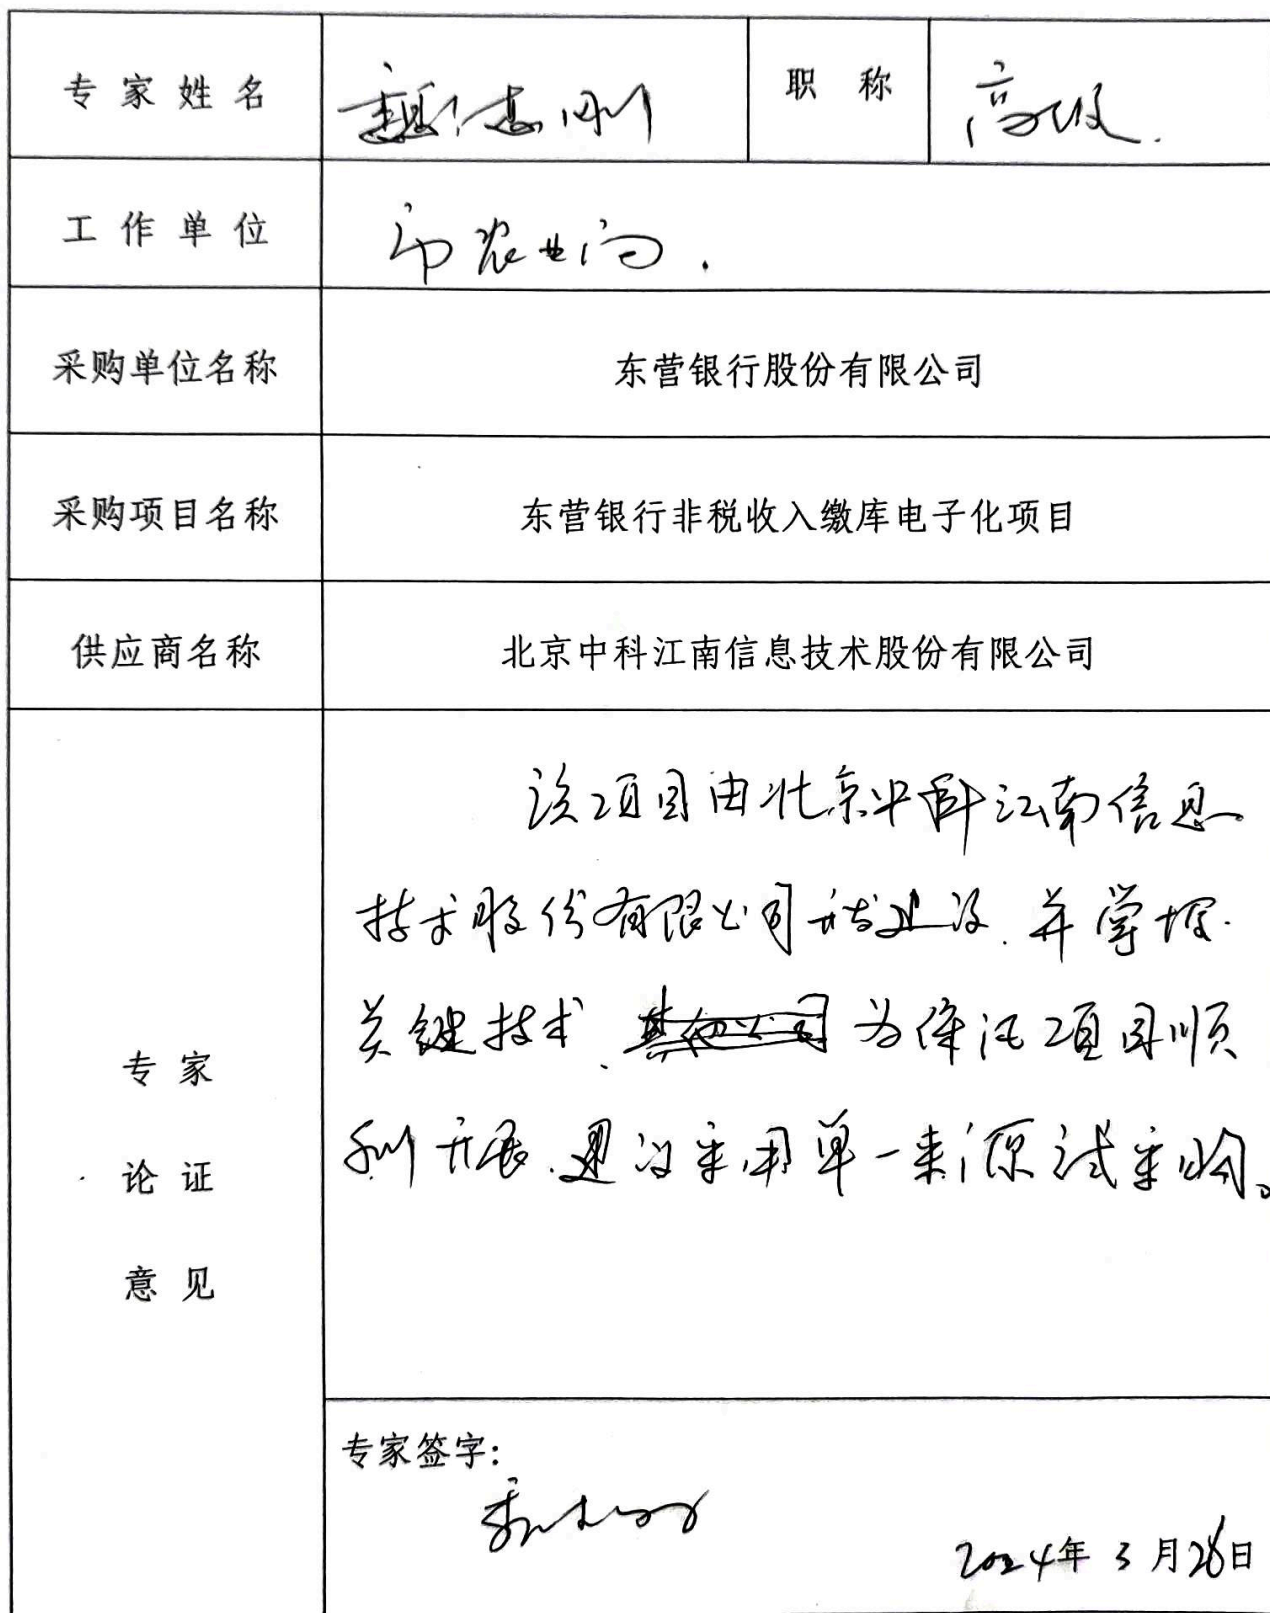 专家姓名 志刚 职称 高级.
工作单位 市农业局.
采购单位名称 东营银行股份有限公司
采购项目名称 东营银行非税收入缴库电子化项目
供应商名称 北京中科江南信息技术股份有限公司
该项目由北京中科江南信息
技术股份有限公司开发建设.并掌握.
关键技术、为保证项目顺
利开展.建议采用单一来源试采购。
专家
论证
意见
专家签字:
2024年3月28日